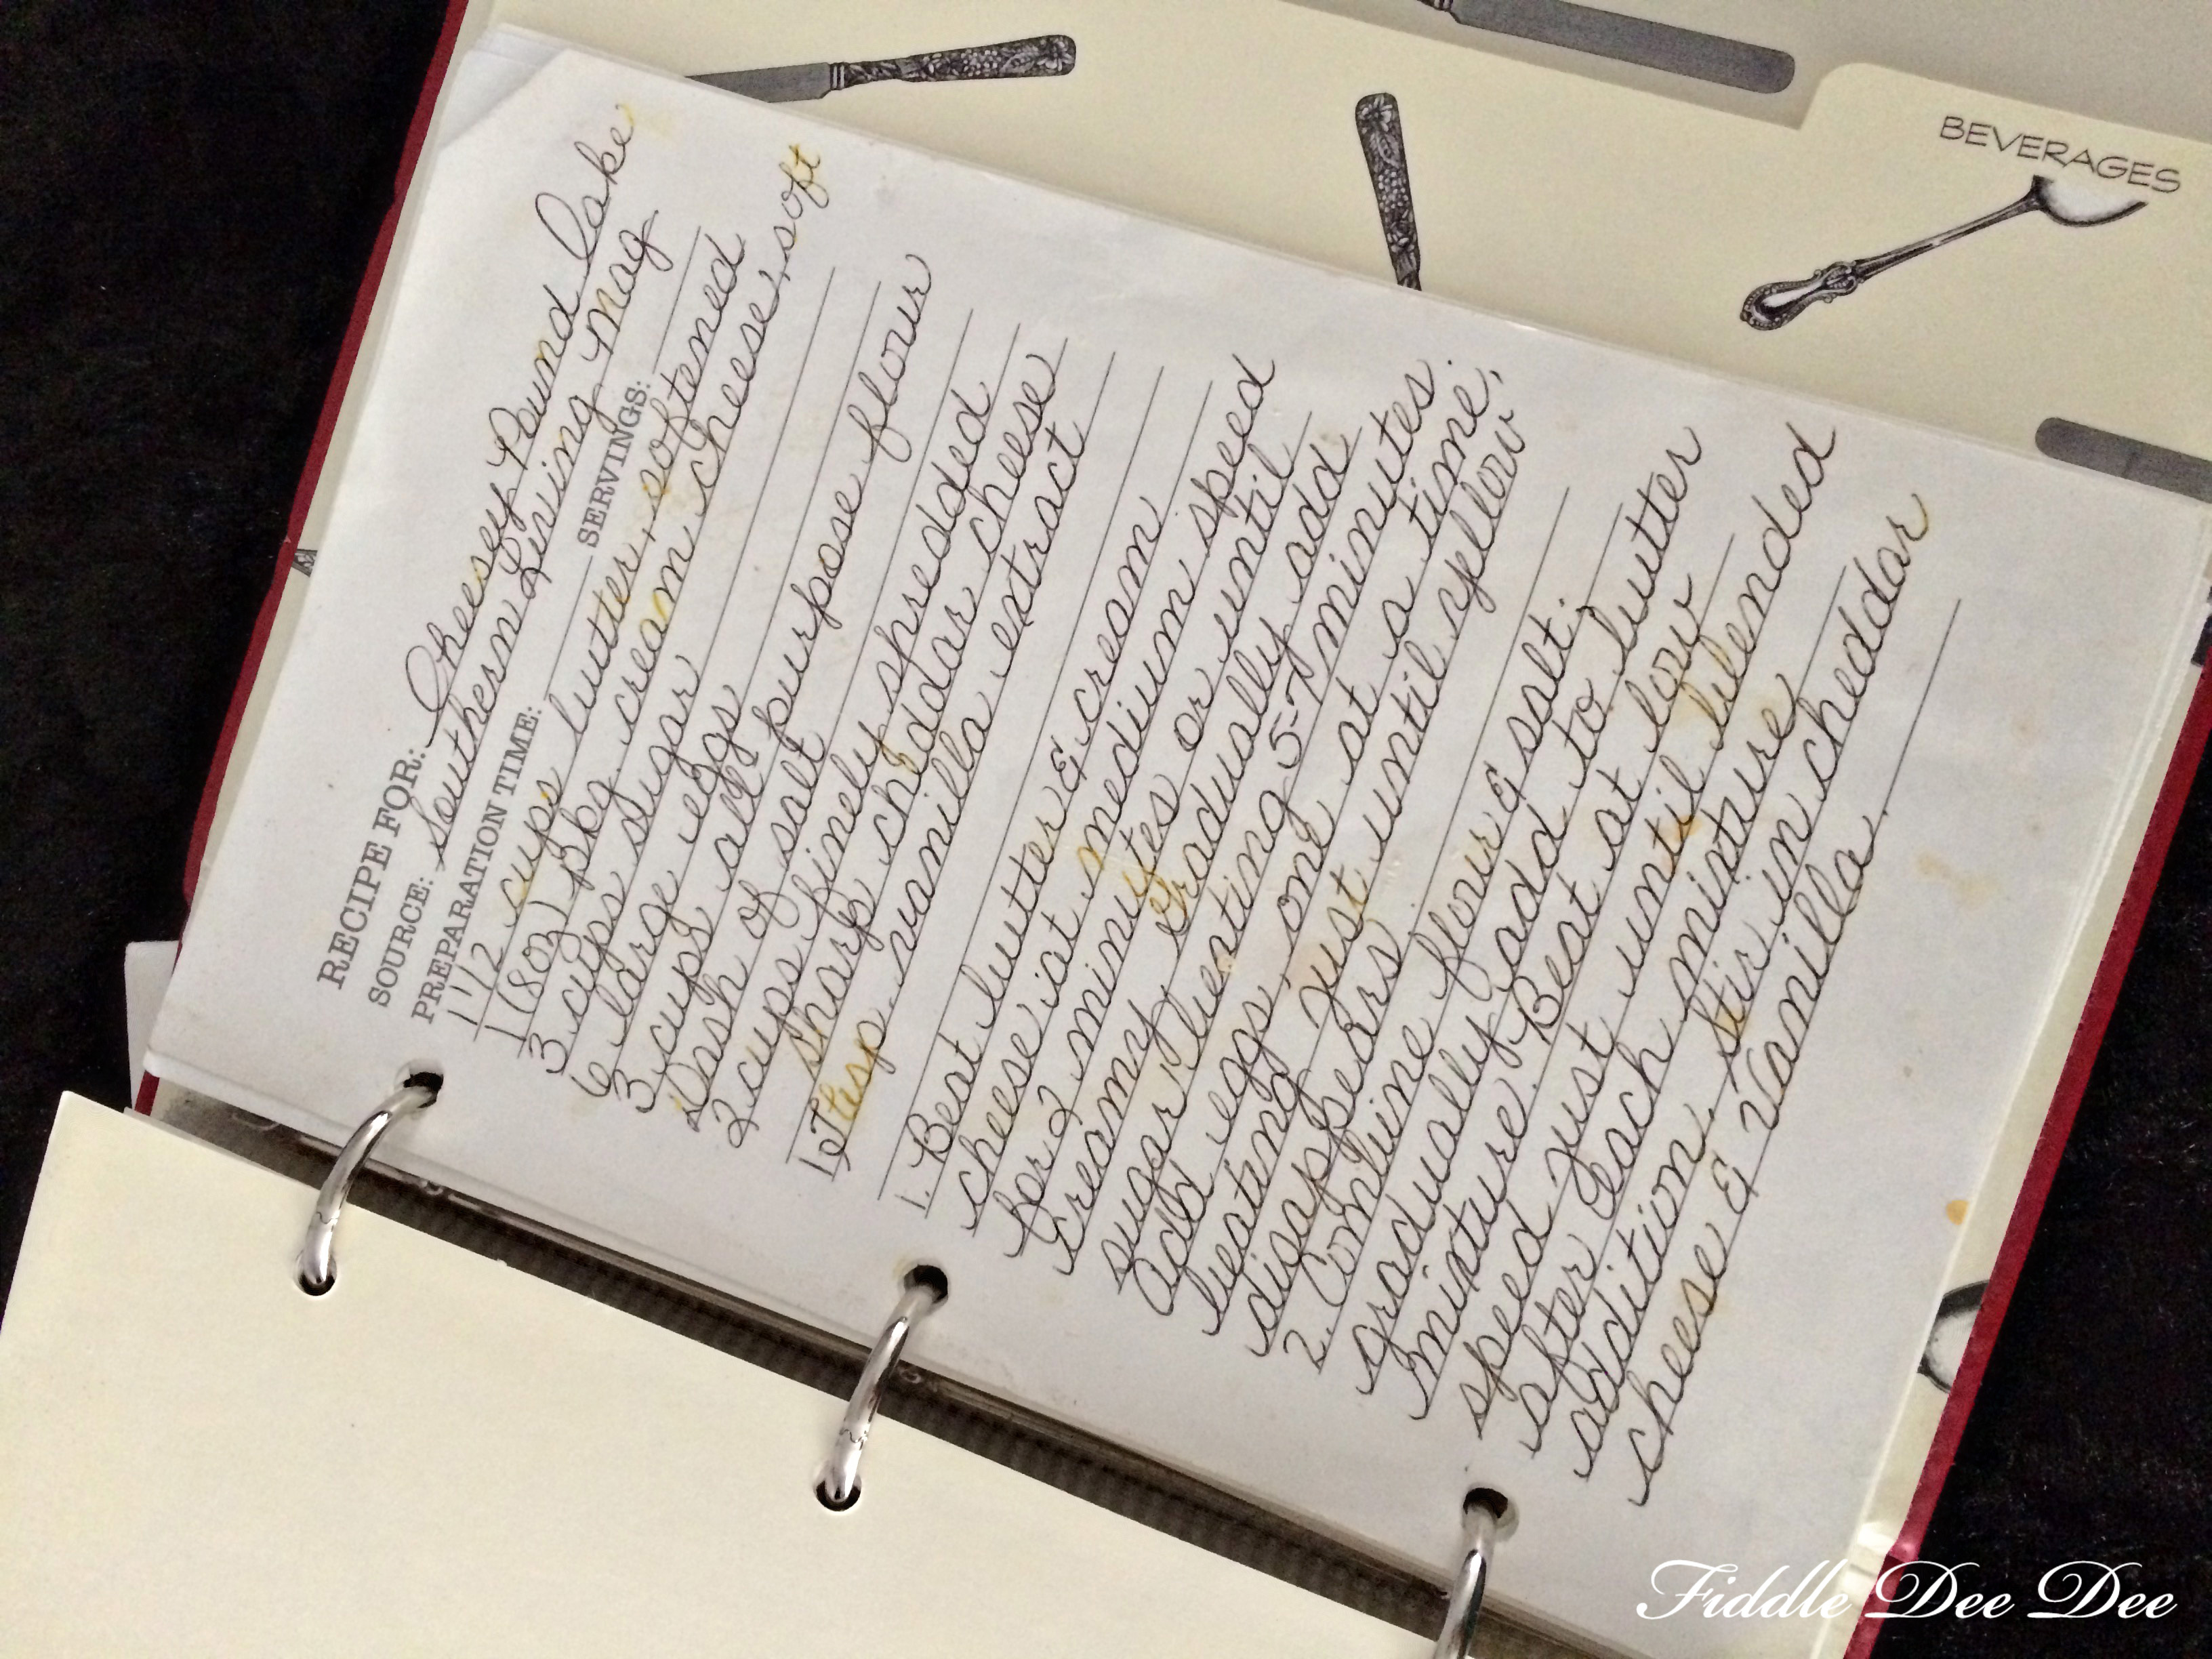 RECIPE FOR: Cheesey Pound Cake
SOURCE: Southern Living Mag
PREPARATION TIME: SERVINGS:
1 1/2 cups butter, softened
1 (8oz) pkg cream cheese, soft
3 cups sugar
6 large eggs
3 cups all purpose flour
Dash of salt
2 cups finely shredded
sharp cheddar cheese
1 Tbsp vanilla extract
1. Beat butter & cream
cheese at medium speed
for 2 minutes or until
creamy. Gradually add
sugar, beating 5-7 minutes.
Add eggs, one at a time,
beating just until yellow
disappears.
2. Combine flour & salt.
gradually add to butter
mixture. Beat at low
speed just until blended
after each mixture
addition. Stir in cheddar
cheese & Vanilla.
BEVERAGES
Fiddle Dee Dee